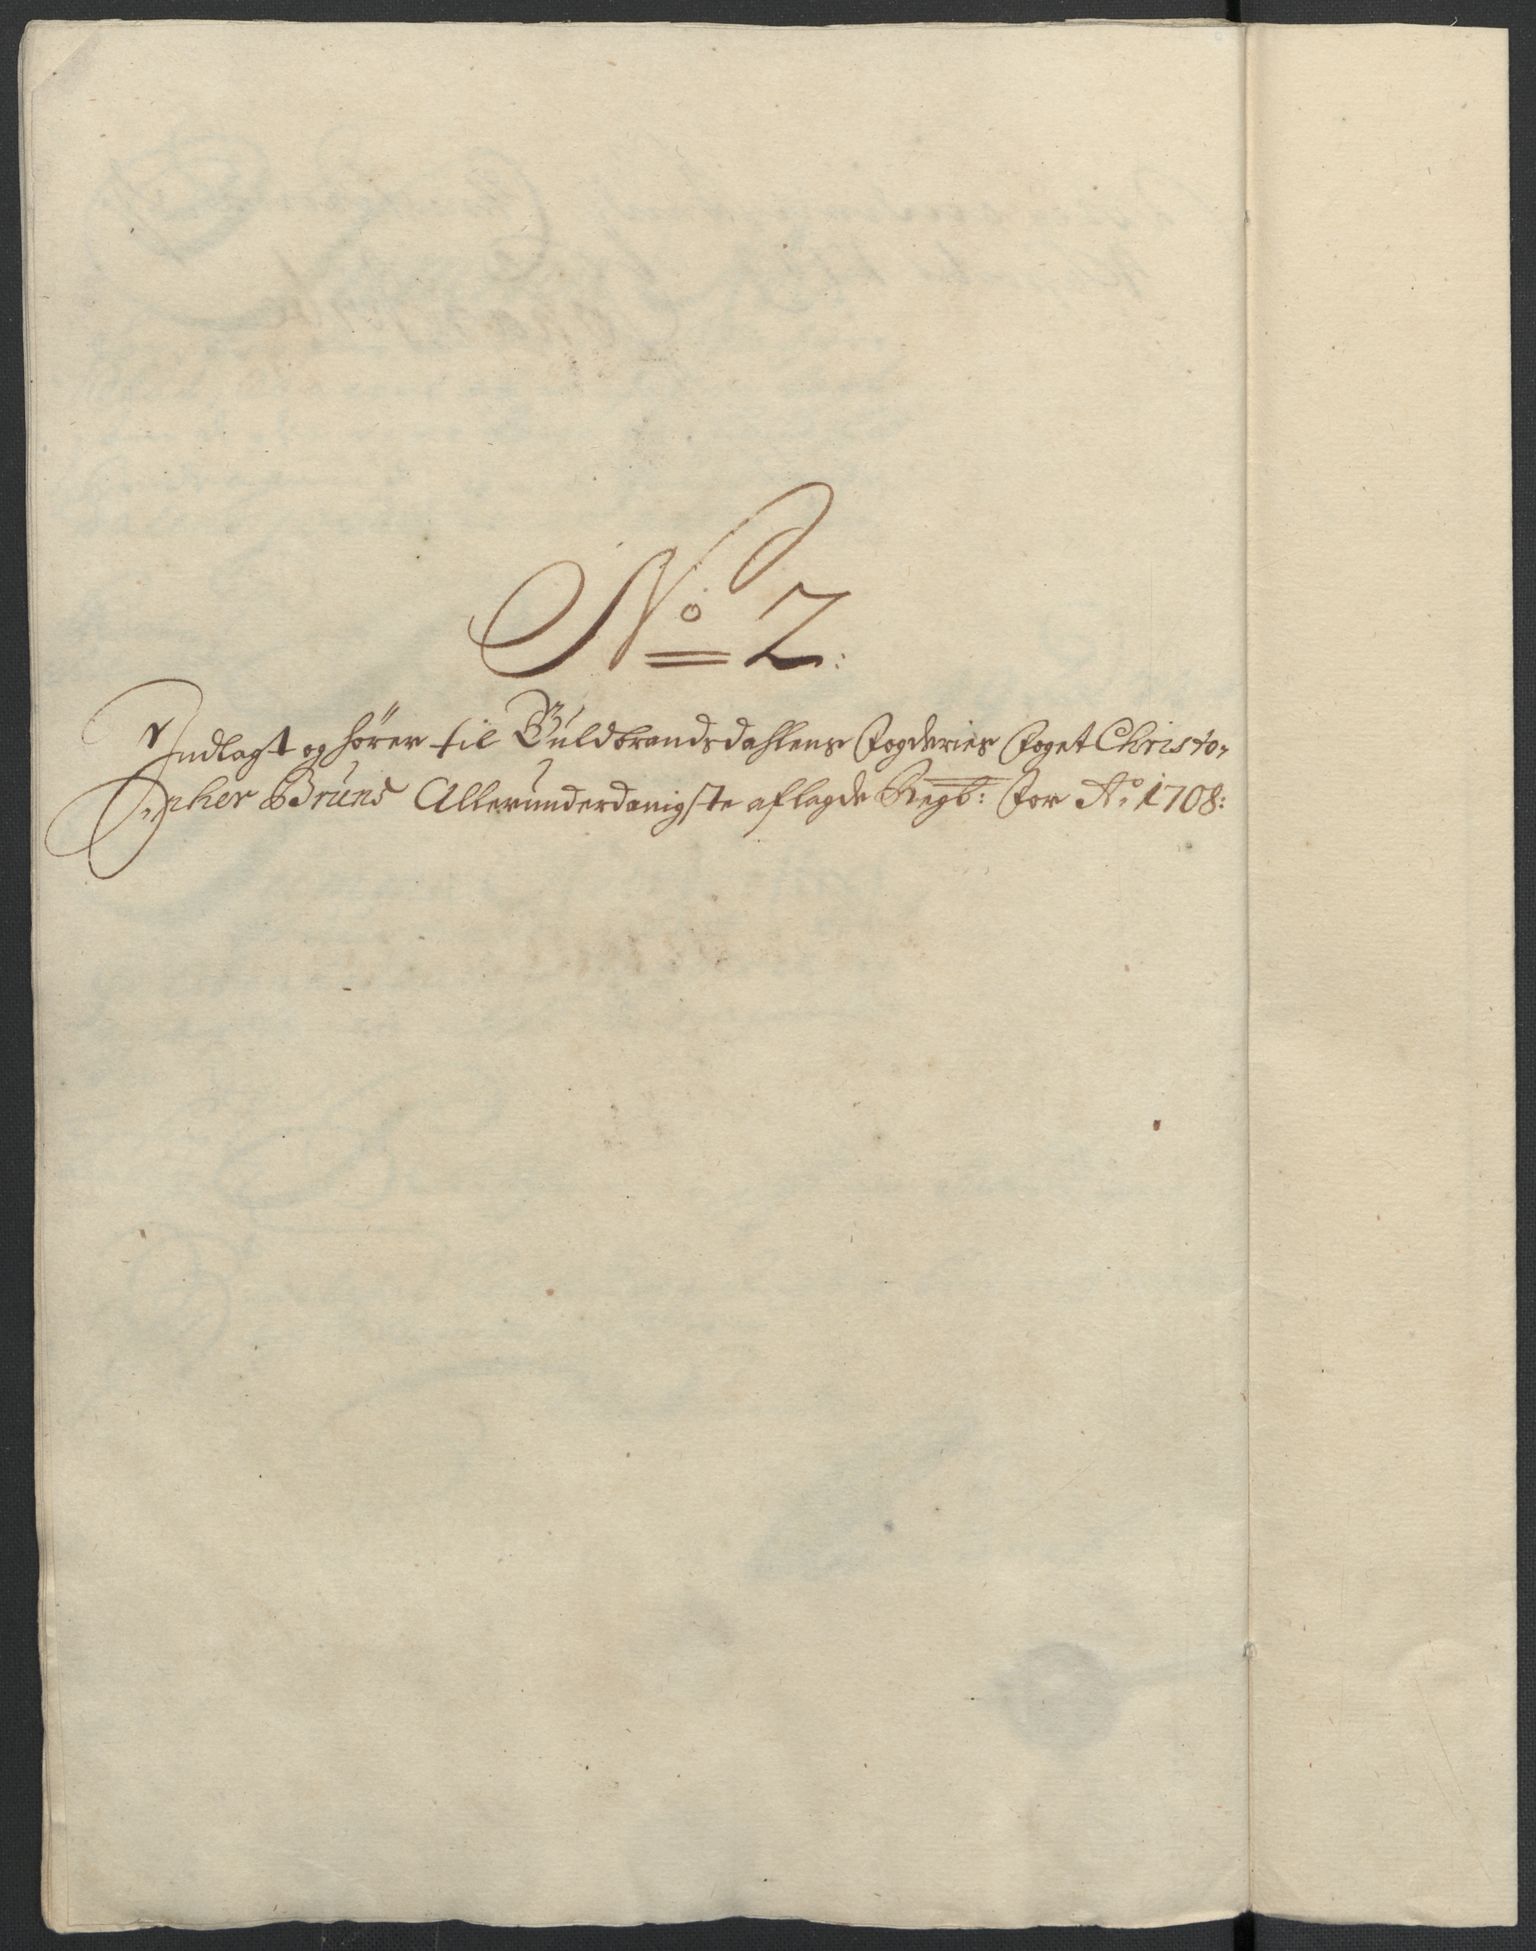 No 2:
Indlagt og hører til Guldbrandsdahlens Fogderies Foget Christo,,
,,pher Bruns Allerunderdanigste aflagde Regb: For Ao 1708: